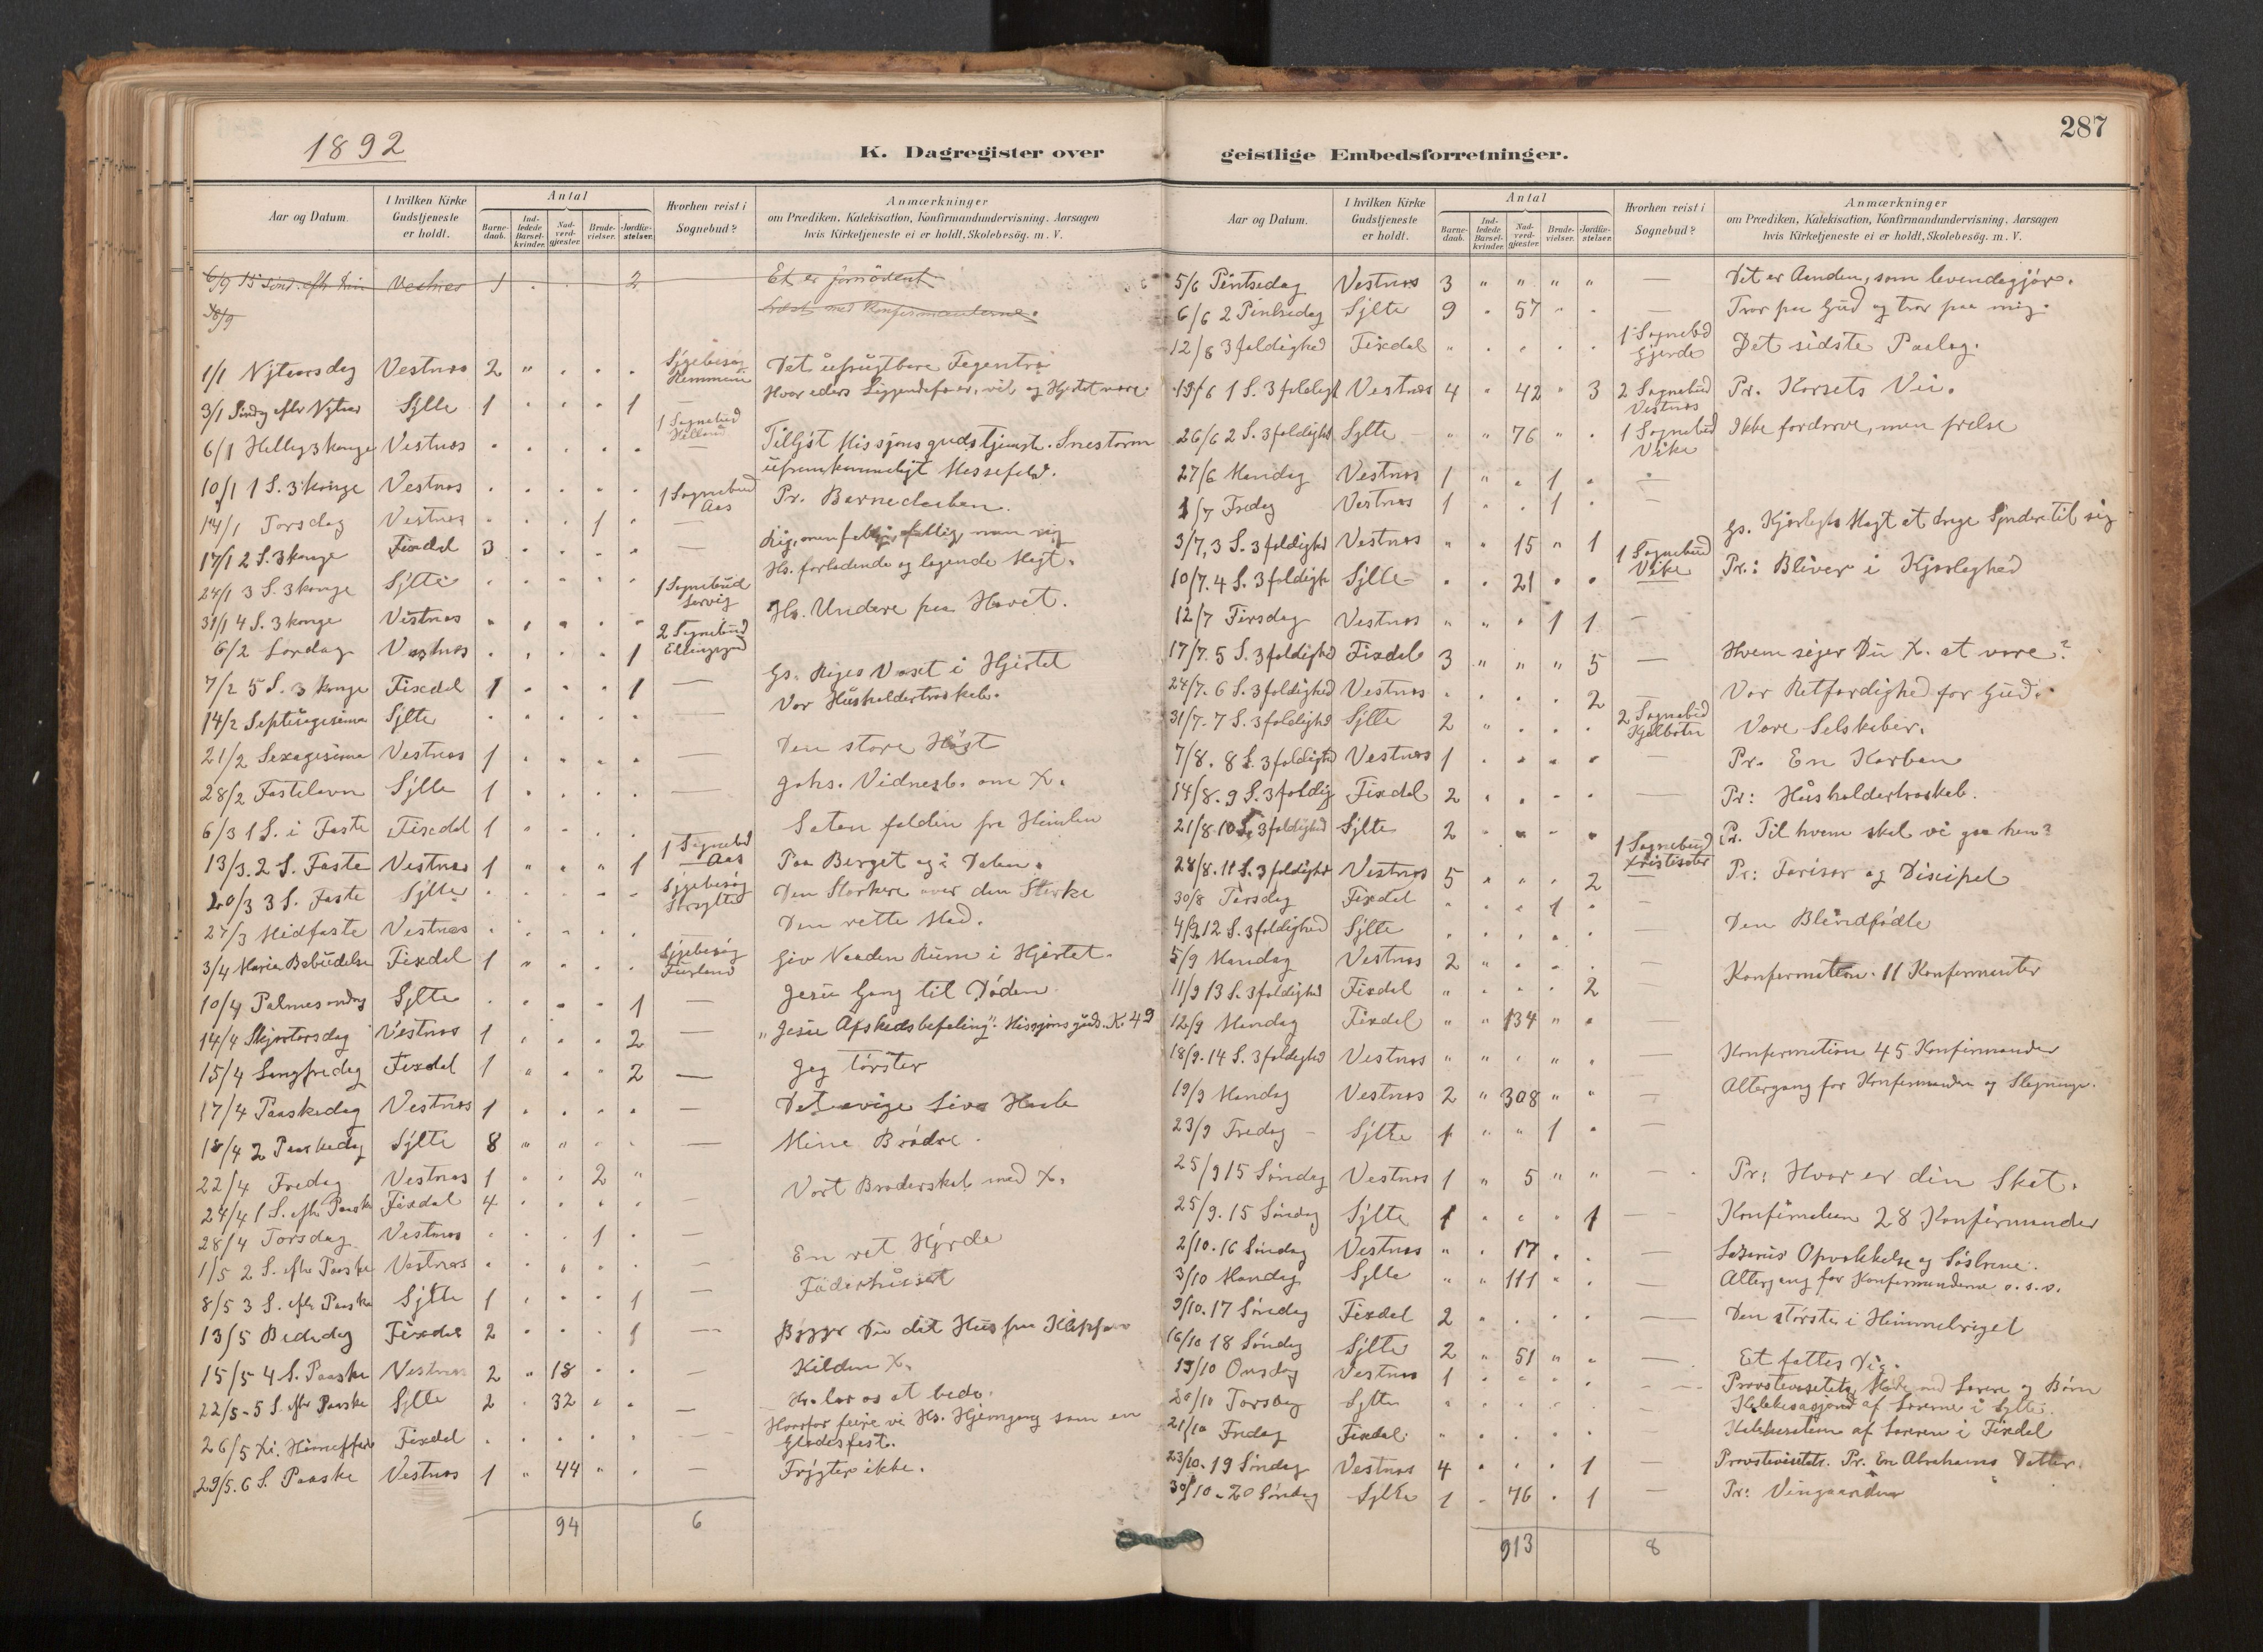 287
1892
K. Dagregister over geistlige Embedsforretninger.
Aar og Datum. I hvilken Kirke Gudstjeneste er holdt. Antal Barne-daab. Ind-ledede Barsel-kvinder. Nad-verd-gjæster. Brude-vielser. Jordfæ-stelser. Hvorhen reist i Sognebud? Anmærkninger om Prædiken, Katekisation, Konfirmandundervisning. Aarsagen hvis Kirketjeneste ei er holdt, Skolebesög. m. V.
6/9 15 Vestnes 1 2 Et er fornödent
18/9 med Konfirmanterne.
1/1 Nytaarsdag Vestnes 2 " . . . Sygebesøg Det ufrugtbare Fegentræ
3/1 Sylte 1 . . . 1 — Hvor eders
6/1 Hellig3konge Vestnes . . . . . 1 Sognebud Missjonsgudstjeneste. Snestorm
10/1 1 S. 3konge Vestnes . . . . . 1 Sognebud Aas Pr. Barnedaaben.
14/1 Torsdag Vestnes . . . 1 . —
17/1 2 S. 3konge Fixdal 3 . . . . —
24/1 3 S. 3konge Sylte . . . . . 1 Sognebud Hs. forladende og lægende Magt.
31/1 4 S. 3konge Vestnes . . . . . 2 Sognebud Hs. Undere paa Havet.
6/2 Lørdag Vestnes . . . . 1
7/2 5 S. 3konge Fixdal 1 . . . 1 — Gs. Riges Væxt i Hjertet
14/2 Septuagesima Sylte . . . . . — Vor Husholdertroskab.
21/2 Sexagesima Vestnes 1 . . . . — Den store Høst
28/2 Fastelavn Sylte 1 . . . . — Johs. Vidnesb. om X.
6/3 1 S. i Faste Fixdal 1 . . . . Satan falden fra Himlen
13/3. 2 S. Faste Vestnes 1 " . " 1 1 Sognebud Aas Paa Berget og i Dalen.
20/3 3 S. Faste Sylte . . . . . Sygebesøg Den Stærkere over den Stærke
27/3 Midfaste Vestnes . . . . . Den rette Mad.
3/4 Maria Bebudelse Fixdal 1 " . . . Sygebesøg Giv Naaden Rum i Hjertet.
10/4 Palmesøndag Sylte . . . . 1 — Jesu Gang til Døden
14/4 Skjærtorsdag Vestnes 1 . . . 2 — "Jesu Afskedsbefaling". Missjonsguds. K. 49
15/4 Langfredag Fixdal 1 " . . 2 — Jeg tørster
17/4 Paaskedag Vestnes 1 . . . . — Det evige Livs Haab
18/4 2 Paaskedag Sylte 8 " " . . — Mine Brødre.
22/4 Fredag Vestnes 1 . . 2 "
24/4 1 S. efter Paaske Fixdal 4 . . . . — Vort Broderskab med X.
28/4 Torsdag Vestnes . . . 1 . —
1/5 2 S. efter Paaske Vestnes . . . . . — En ret Hyrde
8/5 3 S. efter Paaske Sylte 1 . . . 1 — Faderhuset
13/5 Bededag Fixdal 2 . . . 1 — Bygger Du dit Hus paa Klippen
15/5 4 S. Paaske Vestnes 2 " 18 . . — Kilden X.
22/5. 5 S. efter Paaske Sylte 2 . 32 . . — Hr. lær os at bede.
26/5 Fixdal . . . . . — Hvorfor feire vi Hs. Hjemgang som en Glædesfest.
29/5. 6 S. Paaske Vestnes 1 " 44 " . — Frygter ikke.
94 6
5/6 Pintsedag Vestnes 3 " " " " — Det er Aanden, som levendegjør.
6/6 2 Pintsedag Sylte 9 . 57 . . — Tror paa Gud og tror paa mig.
12/6 3foldighed Fixdal " . . . . 1 Sognebud Gjerde Det sidste Paalæg.
19/6 1 S. 3foldighd Vestnes 4 " 42 " 3 2 Sognebud Vestnes Pr. Korsets Vei.
26/6 2 S. 3foldighd Sylte " " 76 " . 1 Sognebud Vike Ikke fordærve, men frelse
27/6 Mandag Vestnes 1 " . 1 . —
1/7 Fredag Vestnes 1 . . 1 . —
3/7, 3 S. 3foldighd Vestnes " " 15 " 1 1 Sognebud Vike Gs. Kjærligheds Magt at drage Syndere til sig
10/7. 4 S. 3foldigh Sylte . . 21 . . Pr.: Bliver i Kjærlighed
12/7 Tirsdag Vestnes " " . 1 1 —
17/7. 5 S. 3foldighd Fixdal 3 " " " 5 — Hvem siger Du X. at være?
24/7. 6 S. 3foldighed Vestnes . . . . 2 Vor Retfærdighed for Gud.
31/7. 7 S. 3foldighd Sylte 2 " . . . 2 Sognebud Kjelbotn Vore Selskaber.
7/8. 8 S. 3foldighd Vestnes 1 . . . . — Pr. En Korban
14/8. 9 S. 3foldig Fixdal 2 . . . . — Pr: Husholdertroskab.
21/8. 10 S. 3foldighed Sylte 2 . . . . Pr. Til hvem skal vi gaa hen?
28/8. 11 S. 3foldighd Vestnes 5 . . . 2 1 Sognebud Pr: Farisær og Discipel
30/8 Tirsdag Fixdal . . . 1 . —
4/9. 12 S. 3foldighed Sylte . . . . . — Den Blindfødte
5/9 Mandag Vestnes 2 " . . . —
11/9 13 S. 3foldighed Fixdal " . . . 2 — Konfirmation. 11 Konfirmanter
12/9 Mandag Fixdal " " 134 " .
18/9. 14 S. 3foldighed Vestnes " " . " . — Konfirmation 45 Konfirmander
19/9 Mandag Vestnes 2 " 308 " " — Altergang for Konfirmander og Slegninge.
23/9 Fredag — Sylte 1 " " 1 . —
25/9 15 Søndag Vestnes 1 " 5 " " — Pr: Hvor er din Skat.
25/9. 15 Søndag Sylte 1 . . . 1 — Konfirmation 28 Konfirmander
2/10. 16 Søndag Vestnes " . 17 . . — Lazarus Opvækkelse og Søstrene.
3/10 Mandag Sylte " " 111 " . — Altergang for Konfirmanderne o.s.v.
9/10. 17 Søndag Fixdal 2 . . . . — Den største i Himmelriget
16/10 18 Søndag Sylte 2 " 51 " . — Et fattes Dig.
19/10 Onsdag Vestnes 1 . . . . — Provstevisitats, Møde med Lærere og Børn
20/10 Torsdag Sylte . . . . . — af Lærerne i Sylte.
21/10 Fredag Fixdal " . . . . — Katekisation af Læreren i Fixdal
23/10. 19 Søndag Vestnes 4 . . . 1 — Provstevisitats. Pr. En Abrahams Datter.
30/10. 20 Søndag Sylte 1 . 76 . 1 — Pr: Vingaarden
913 8